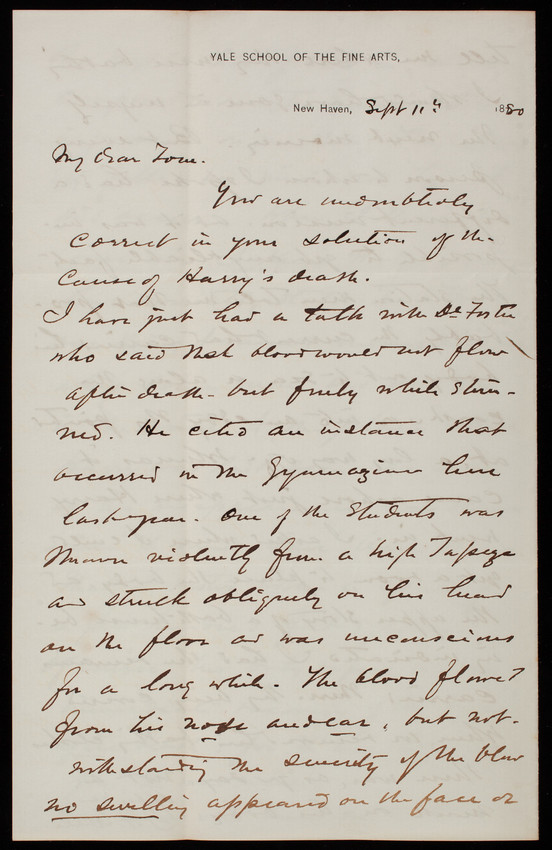 YALE SCHOOL OF THE FINE ARTS,
New Haven, Sept 11th 1880
My dear Tom.
You are undoubtedly
correct in your solution of the
cause of Harry's death.
I have just had a talk with Dr Foster
who said that blood would not flow
after death - but freely while stun-
ned. He cited an instance that
occurred in the Gymnasium here
last year. One of the Students was
thrown violently from a high Trapeze
and struck obliquely on his head
on the floor and was unconscious
for a long while. The blood flowed
from his nose and ear, but not-
withstanding the severity of the blow
no swelling appeared on the face or